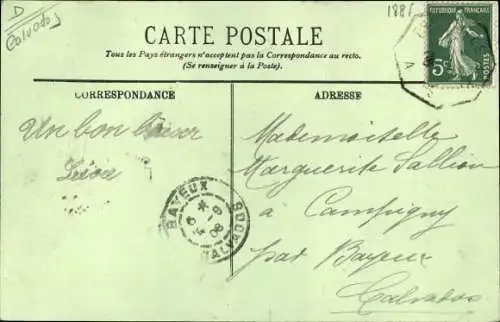 D
Calvados
1881
RÉPUBLIQUE FRANÇAISE
5c
POSTES
CARTE POSTALE
Tous les Pays étrangers n'acceptent pas la Correspondance au recto.
(Se renseigner à la Poste).
CORRESPONDANCE
ADRESSE
Un bon baiser
Mademoiselle
Marguerite Sallion
à Campigny
par Bayeux
Calvados
BAYEUX
6 - 9
08
CALVADOS